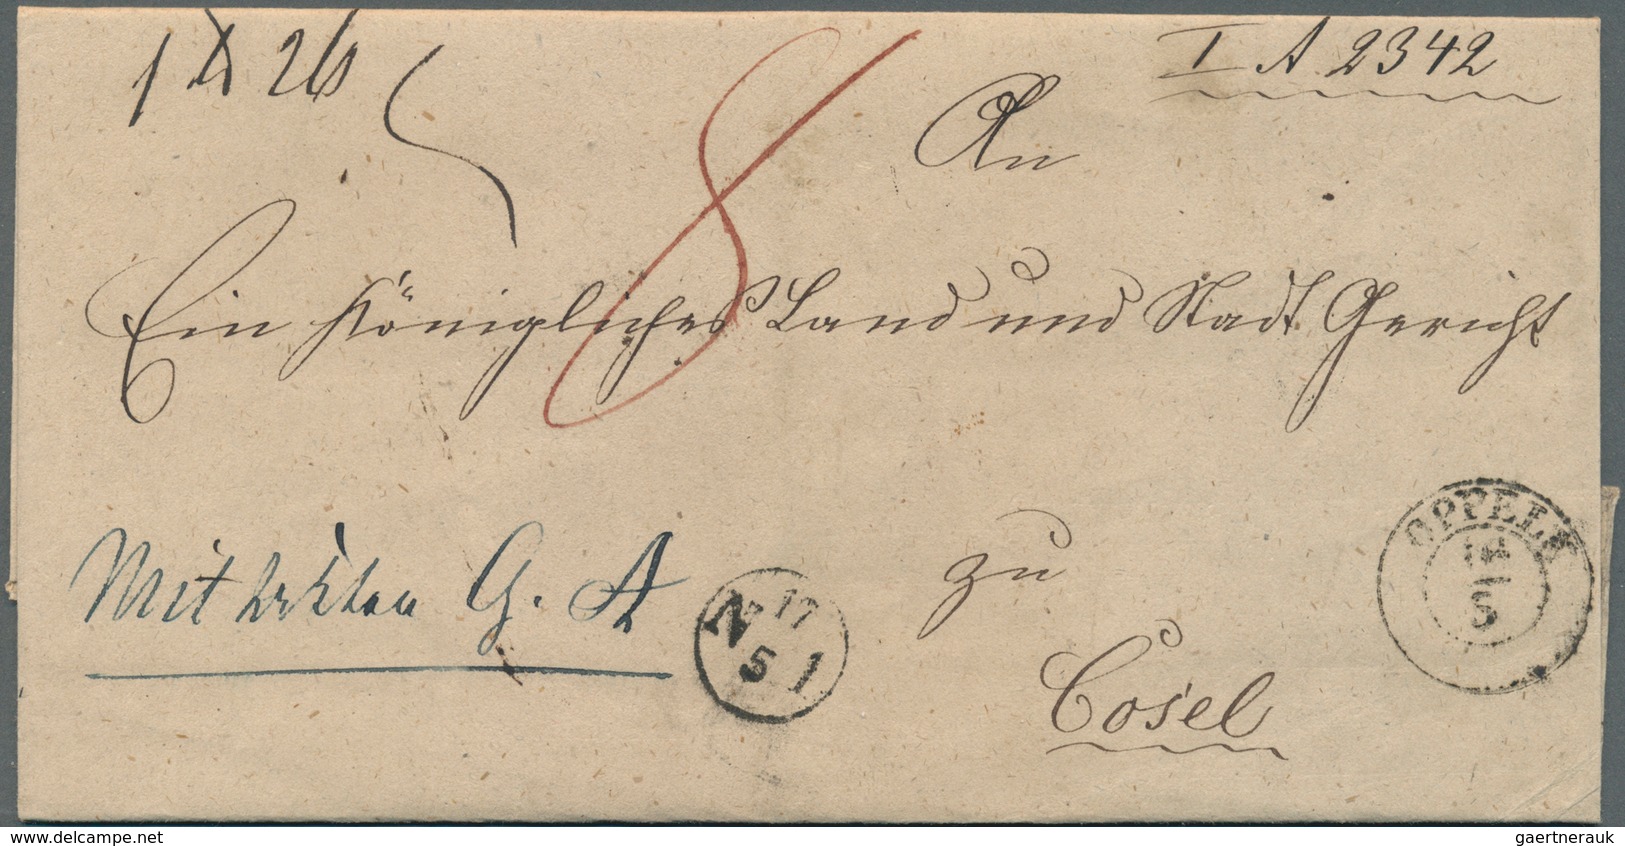 I A 2342
An
8
Ein Königliches Land und Stadt Gericht
Mit G. A
zu
Cosel
N 17
5 1
OPPELN
5
www.delcampe.net
gaertnerauk